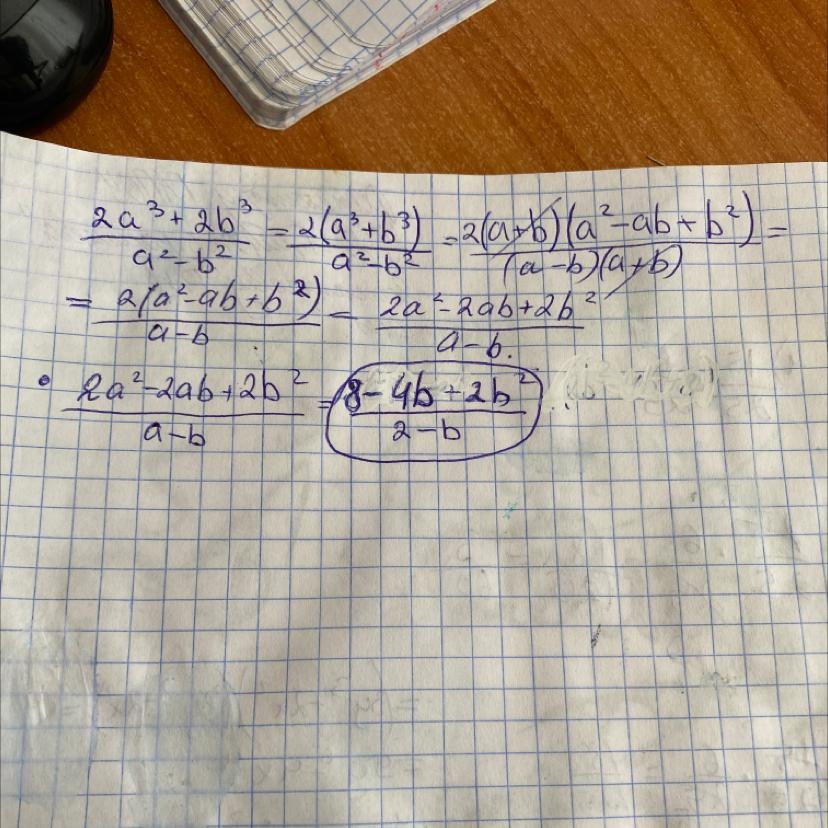 (2a³ + 2b³)/(a² - b²) = 2(a³+b³)/(a²-b²) = 2(a+b)(a²-ab+b²)/((a-b)(a+b)) =
= 2(a²-ab+b²)/(a-b) = (2a²-2ab+2b²)/(a-b).
• (2a²-2ab+2b²)/(a-b) = (8-4b+2b²)/(2-b)